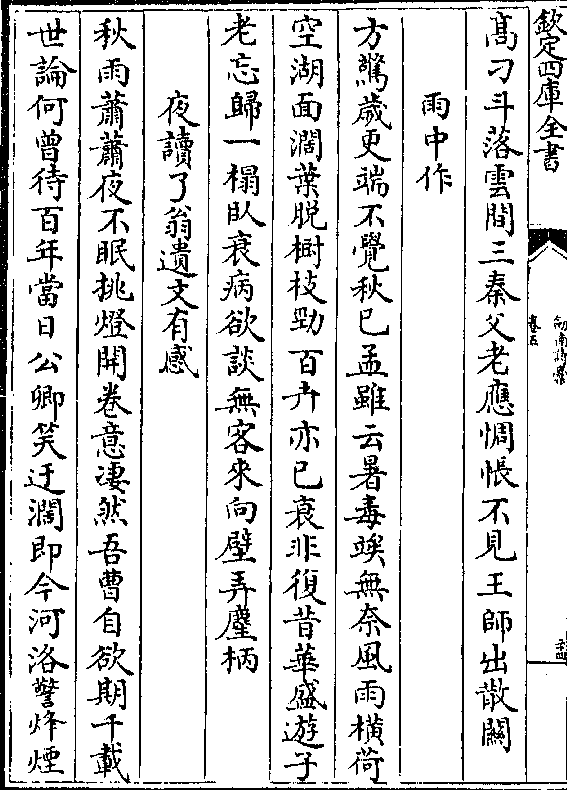 欽定四庫全書
劍南詩藁
卷五
髙刁斗落雲間三秦父老應惆悵不見王師出散關
雨中作
方驚歲更端不覺秋已孟雖云暑毒竢無奈風雨橫荷
空湖面濶葉脱樹枝勁百卉亦已衰非復昔華盛遊子
老忘歸一榻臥衰病欲談無客來向壁弄麈柄
夜讀了翁遺文有感
秋雨蕭蕭夜不眠挑燈開卷意凄然吾曹自欲期千載
世論何曾待百年當日公卿笑迂濶即今河洛警烽煙